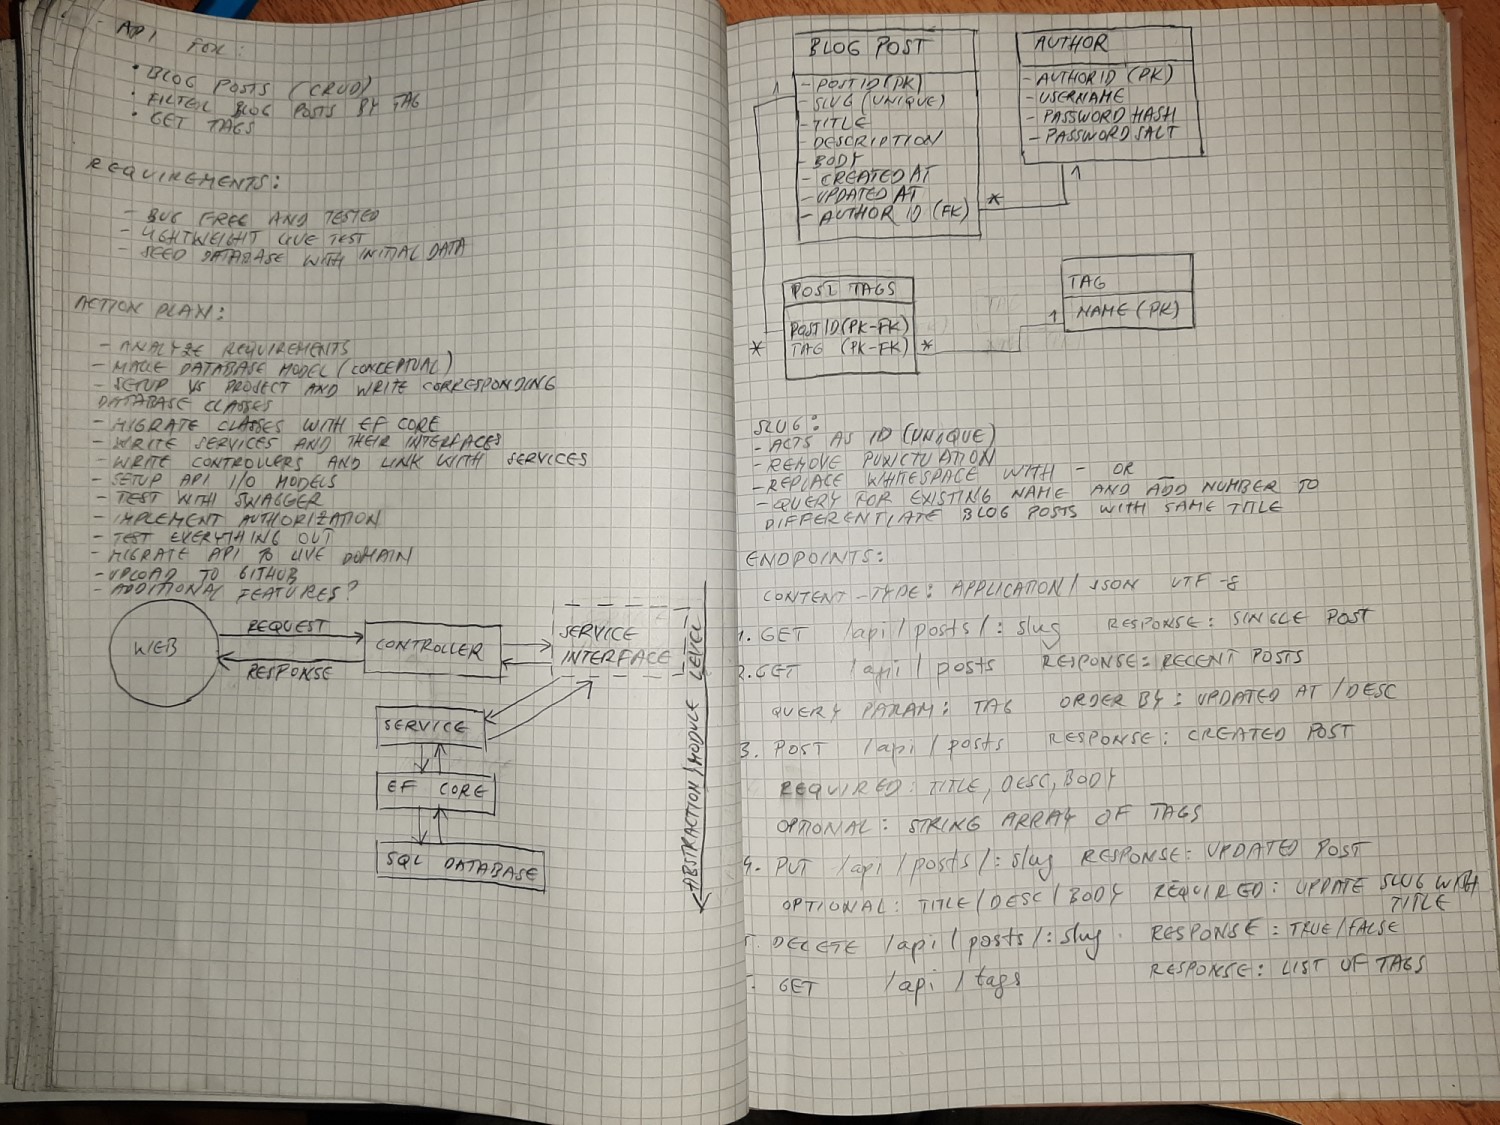 API FOR:
• BLOG POSTS (CRUD)
• FILTER BLOG POSTS BY TAG
• GET TAGS
REQUIREMENTS:
- BUG FREE AND TESTED
- LIGHTWEIGHT LIVE TEST
- SEED DATABASE WITH INITIAL DATA
ACTION PLAN:
- ANALYZE REQUIREMENTS
- MAKE DATABASE MODEL (CONCEPTUAL)
- SETUP VS PROJECT AND WRITE CORRESPONDING
DATABASE CLASSES
- MIGRATE CLASSES WITH EF CORE
- WRITE SERVICES AND THEIR INTERFACES
- WRITE CONTROLLERS AND LINK WITH SERVICES
- SETUP API I/O MODELS
- TEST WITH SWAGGER
- IMPLEMENT AUTHORIZATION
- TEST EVERYTHING OUT
- MIGRATE API TO LIVE DOMAIN
- UPLOAD TO GITHUB
- ADDITIONAL FEATURES?
WEB
REQUEST
RESPONSE
CONTROLLER
SERVICE
INTERFACE
SERVICE
EF CORE
SQL DATABASE
ABSTRACTION/MODULE LEVEL
BLOG POST
- POST ID (PK)
- SLUG (UNIQUE)
- TITLE
- DESCRIPTION
- BODY
- CREATED AT
- UPDATED AT
- AUTHOR ID (FK)
1
*
AUTHOR
- AUTHOR ID (PK)
- USERNAME
- PASSWORD HASH
- PASSWORD SALT
1
POST TAGS
POST ID (PK-FK)
TAG (PK-FK)
*
*
TAG
NAME (PK)
1
SLUG:
- ACTS AS ID (UNIQUE)
- REMOVE PUNCTUATION
- REPLACE WHITESPACE WITH - OR _
- QUERY FOR EXISTING NAME AND ADD NUMBER TO
DIFFERENTIATE BLOG POSTS WITH SAME TITLE
ENDPOINTS:
CONTENT-TYPE: APPLICATION/JSON UTF-8
1. GET /api/posts/:slug RESPONSE: SINGLE POST
2. GET /api/posts RESPONSE: RECENT POSTS
QUERY PARAM: TAG ORDER BY: UPDATED AT/DESC
3. POST /api/posts RESPONSE: CREATED POST
REQUIRED: TITLE, DESC, BODY
OPTIONAL: STRING ARRAY OF TAGS
4. PUT /api/posts/:slug RESPONSE: UPDATED POST
OPTIONAL: TITLE/DESC/BODY REQUIRED: UPDATE SLUG WITH
TITLE
5. DELETE /api/posts/:slug. RESPONSE: TRUE/FALSE
GET /api/tags RESPONSE: LIST OF TAGS